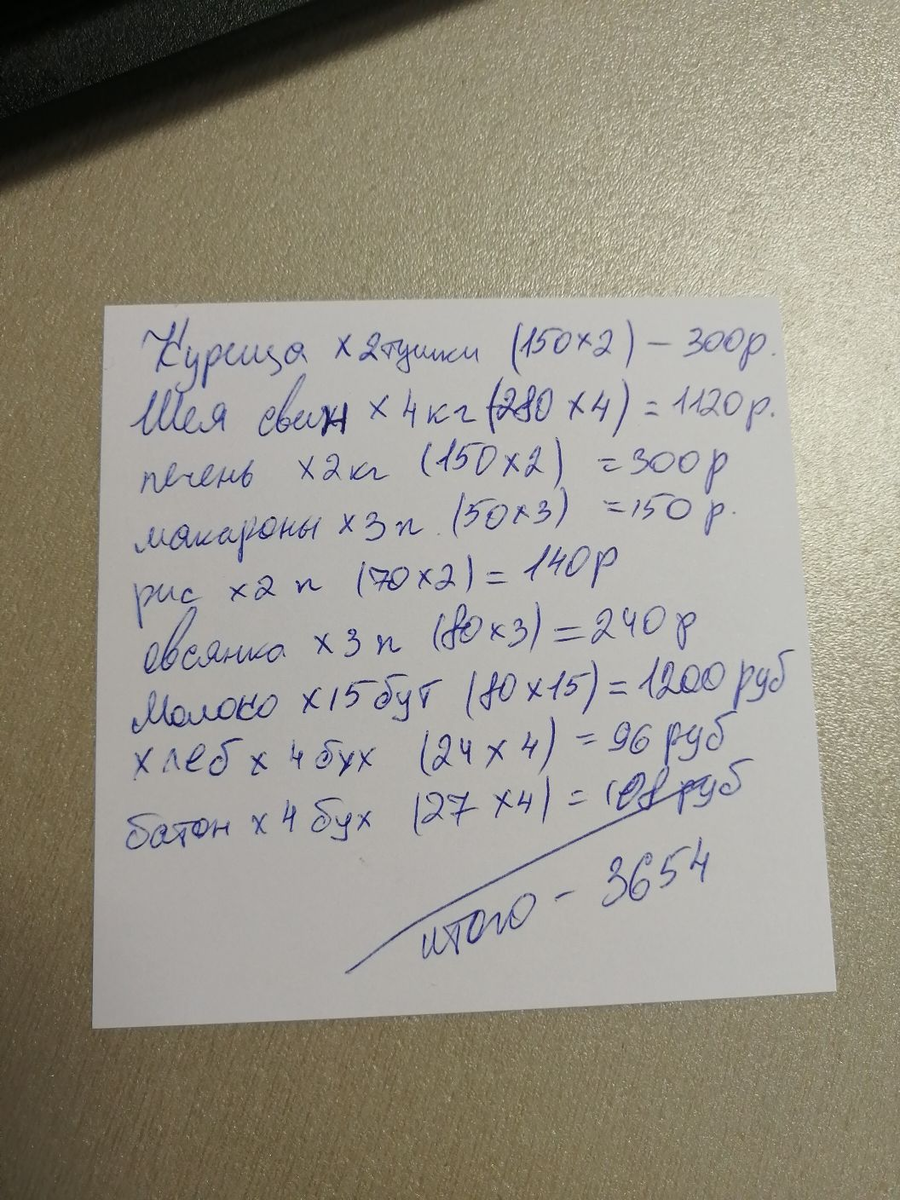 Курица х 2 тушки (150х2) – 300р.
Шея свин х 4 кг (280 х 4) = 1120 р.
печень х2 кг (150х2) = 300 р
макароны х 3 п. (50х3) = 150 р.
рис х2 п (70х2) = 140р
овсянка х 3 п (80х3) = 240 р
Молоко х 15 бут (80 х 15) = 1200 руб
хлеб х 4 бух (24 х 4) = 96 руб
батон х 4 бух (27 х4) = 108 руб
итого – 3654